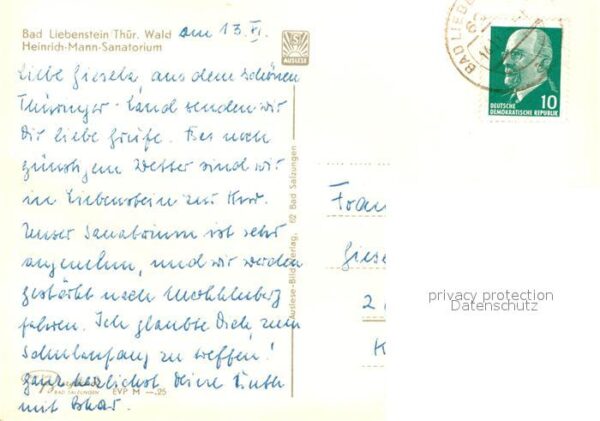 Bad Liebenstein Thür. Wald am 13. VI.
Heinrich-Mann-Sanatorium
AUSLESE
Liebe Giesela, aus dem schönen
Thüringer-Land senden wir
Dir liebe Grüße. Bei noch
günstigem Wetter sind wir
in Liebenstein zur Kur.
Unser Sanatorium ist sehr
angenehm, und wir werden
gestärkt nach
fahren. Ich glaubte Dich, zum
Schulanfang zu treffen!
ganz herzlichst Deine Ruth
mit Oskar.
BAD SALZUNGEN
EVP M —.25
Auslese-Bild-Verlag, 62 Bad Salzungen
BAD LIEBE
10
DEUTSCHE
DEMOKRATISCHE REPUBLIK
Frau
Giese
2
K
privacy protection
Datenschutz